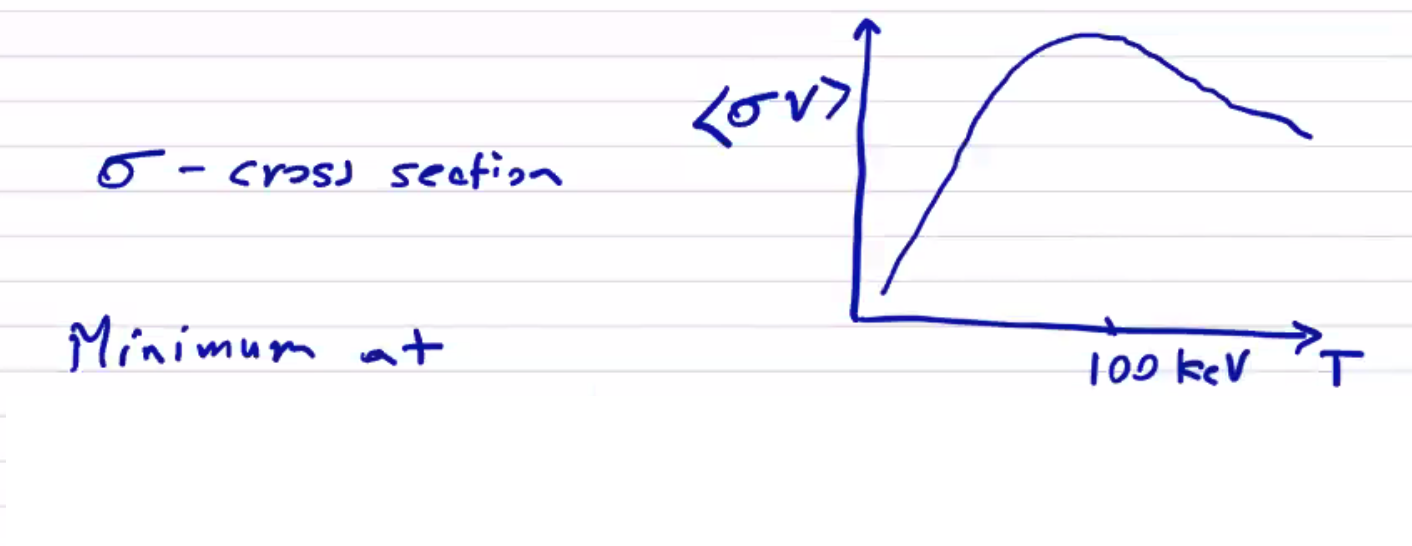 <σv>
σ - cross section
Minimum at
100 keV
T